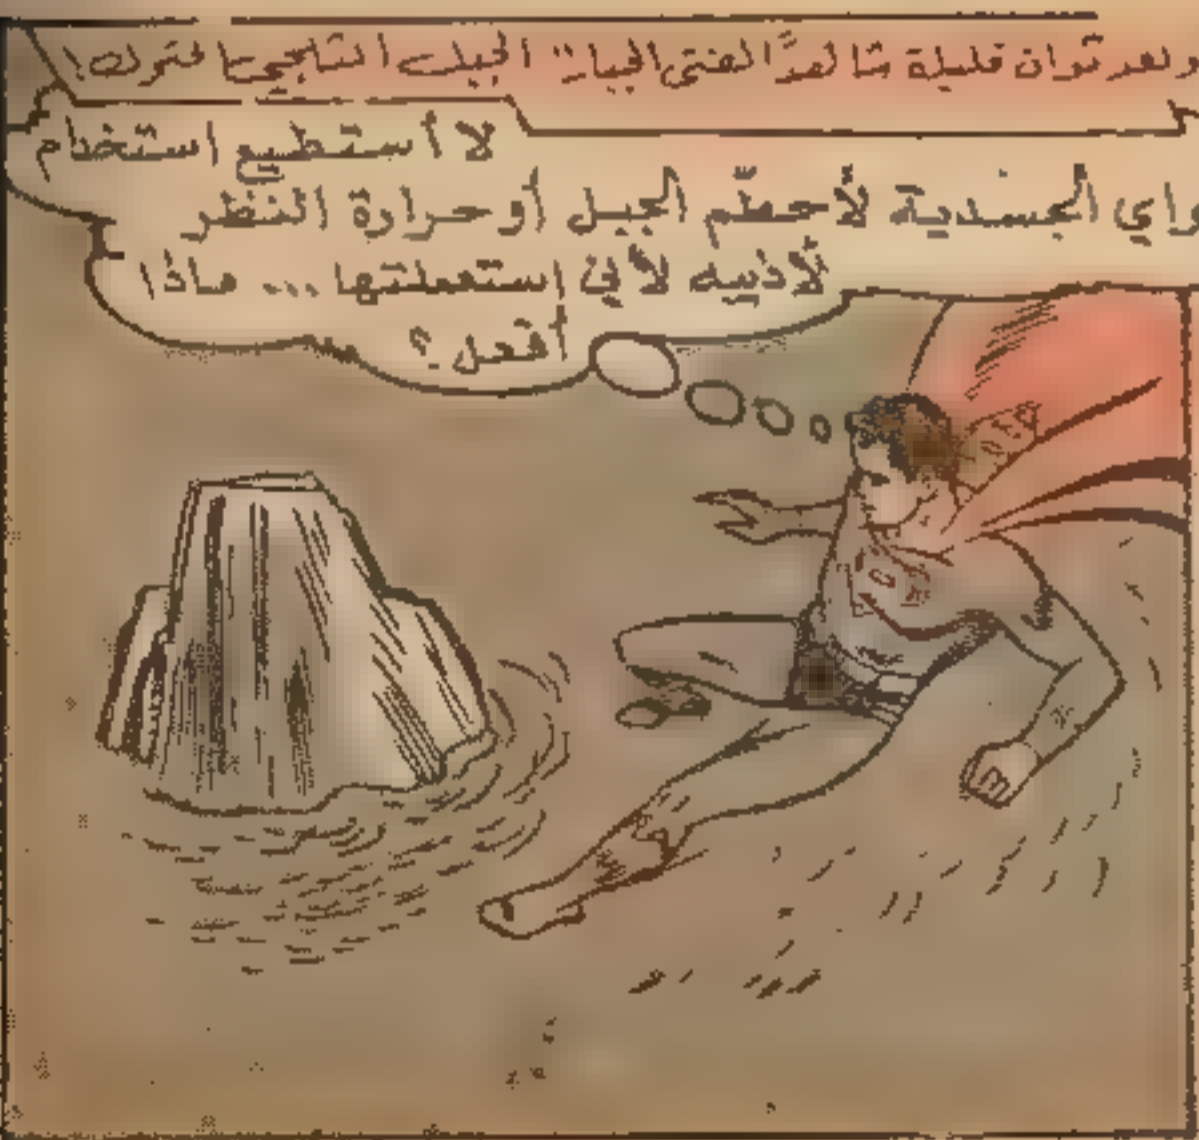 وبعد ثوان قليلة شاهد "الفتى الجبار" الجبل الثلجي يتحرك!
لا أستطيع استخدام
واي الجسدية لأحطّم الجبل أو حرارة النظر
لأذيبه لأني إستعملتها ... ماذا
أفعل ؟